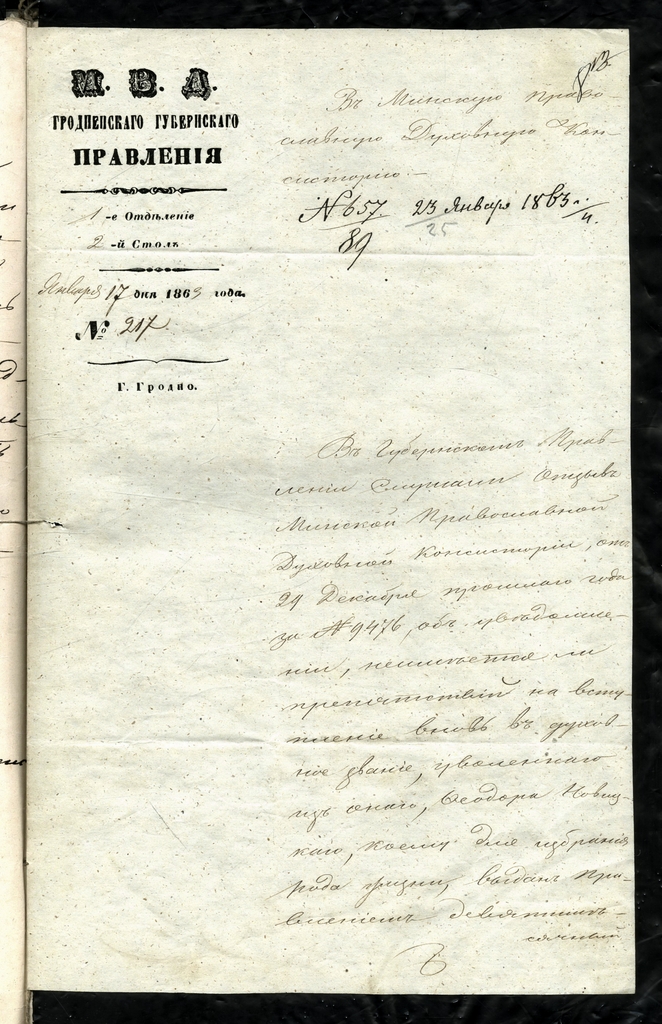 М. В. Д.
ГРОДНЕНСКАГО ГУБЕРНСКАГО
ПРАВЛЕНІЯ
1-е Отдѣленіе
2-й Столъ
Января 17 дня 1863 года.
№ 217
Г. Гродно.
Въ Минскую Право-
славную Духовную Кон-
систорію.
№ 657. 23 Января 1863 г.
25
89
Въ Губернскомъ Прав-
леніи Слушали Отзывъ
Минской Православной
Духовной Консисторіи, отъ
29 Декабря прошлаго года
за № 9476, объ увѣдомле-
ніи, неимѣется ли
препятствій на всту-
пленіе вновь въ духов-
ное званіе, уволеннаго
изъ онаго, Ѳеодора Новиц-
каго, коему для избранія
рода жизни, выданъ Пра-
вленіемъ девятимѣ-
сячный